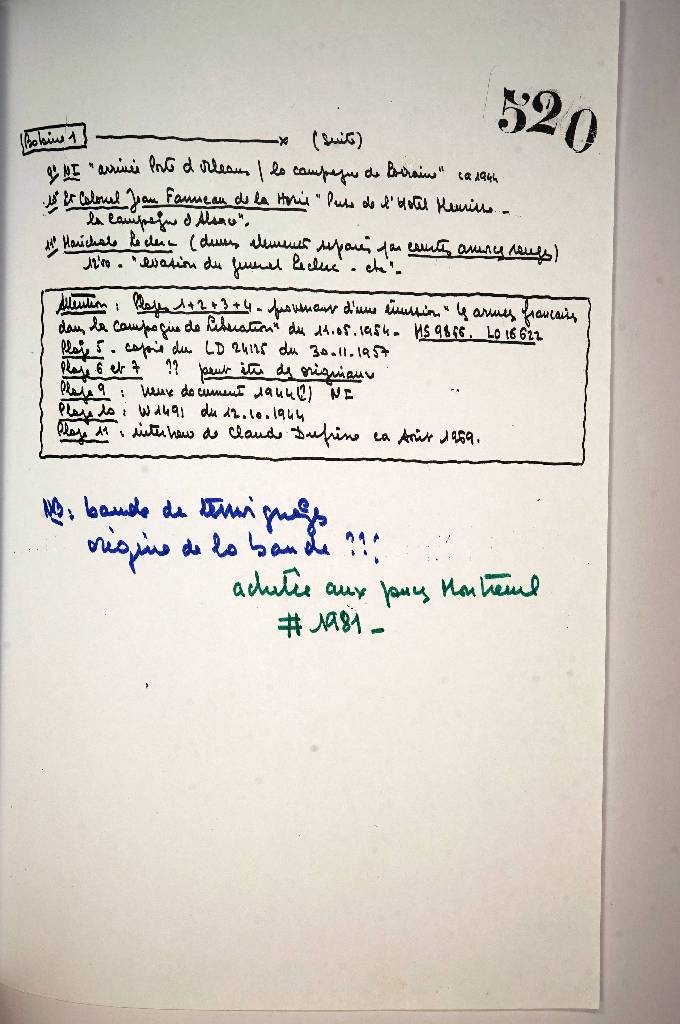 520
Bobine 1 (suite)
9° NI "arrivée Porte d'Orléans / la campagne de Lorraine" ca 1944
10° Lt Colonel Jean Fanneau de la Horie "Prise de l'Hotel Meurisse -
la Campagne d'Alsace".
11° Maréchale Leclerc (divers éléments séparés par courtes amorces rouges)
12'00 - "évasion du général Leclerc - etc" -
Attention : Plages 1+2+3+4 - provenant d'une émission "les armes françaises
dans la campagne de Libération" du 11.05.1954 - MS 9866. LO 16622
Plage 5 - copie du LD 24125 du 30.11.1957
Plage 6 et 7 ?? peut être des originaux
Plage 9 : vieux document 1944(?) NI
Plage 10 : W 1491 du 12.10.1944
Plage 11 : interview de Claude Dufresne ca Août 1969.
NB : bande de témoignages
origine de la bande ???
achetée aux puces Montreuil
# 1981 -